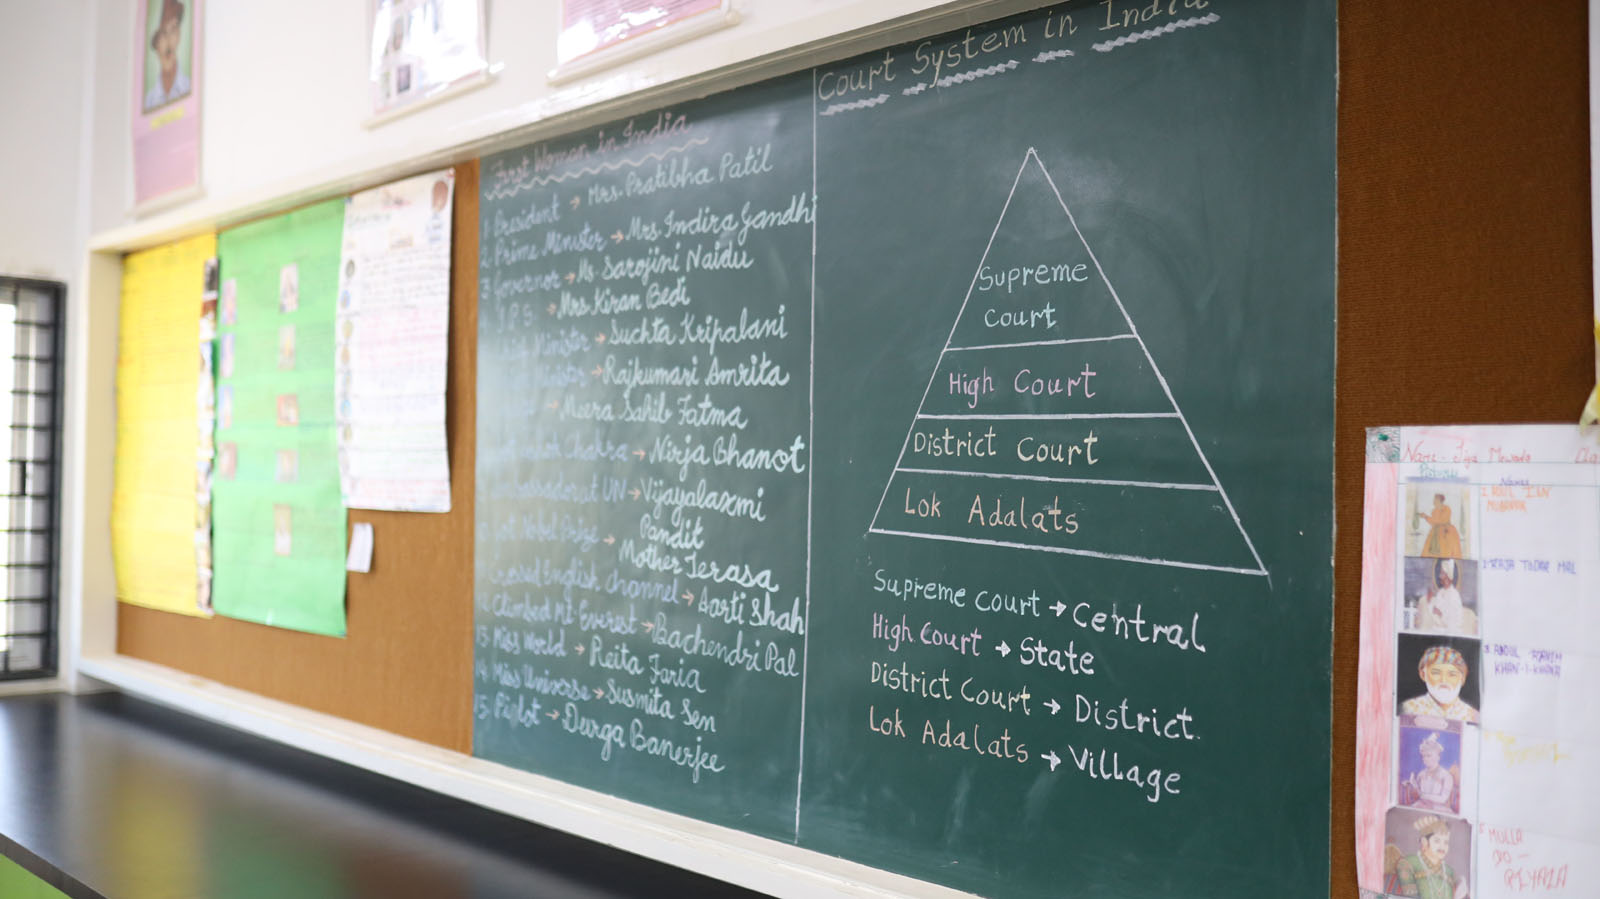 First Woman in India
1. President → Mrs. Pratibha Patil
2. Prime Minister → Mrs. Indira Gandhi
3. Governor → Ms. Sarojini Naidu
I.P.S. → Mrs. Kiran Bedi
Minister → Suchta Kripalani
Minister → Rajkumari Amrita
→ Meera Sahib Fatma
Chakra → Nirja Bhanot
UN → Vijayalaxmi
Pandit
Nobel Prize → Mother Terasa
Crossed English channel → Aarti Shah
Climbed Mt Everest → Bachendri Pal
13. Miss World → Reita Faria
14. Miss Universe → Susmita Sen
15. Piplot → Durga Banerjee
Court System in India
Supreme
Court
High Court
District Court
Lok Adalats
Supreme Court → Central
High Court → State
District Court → District.
Lok Adalats → Village
Name - Jiya Mewada
2 RAJA TODAR MAL
3 ABDUL RAHIM
KHAN-I-KHANA
5 MULLA
DO-
PIYAZA